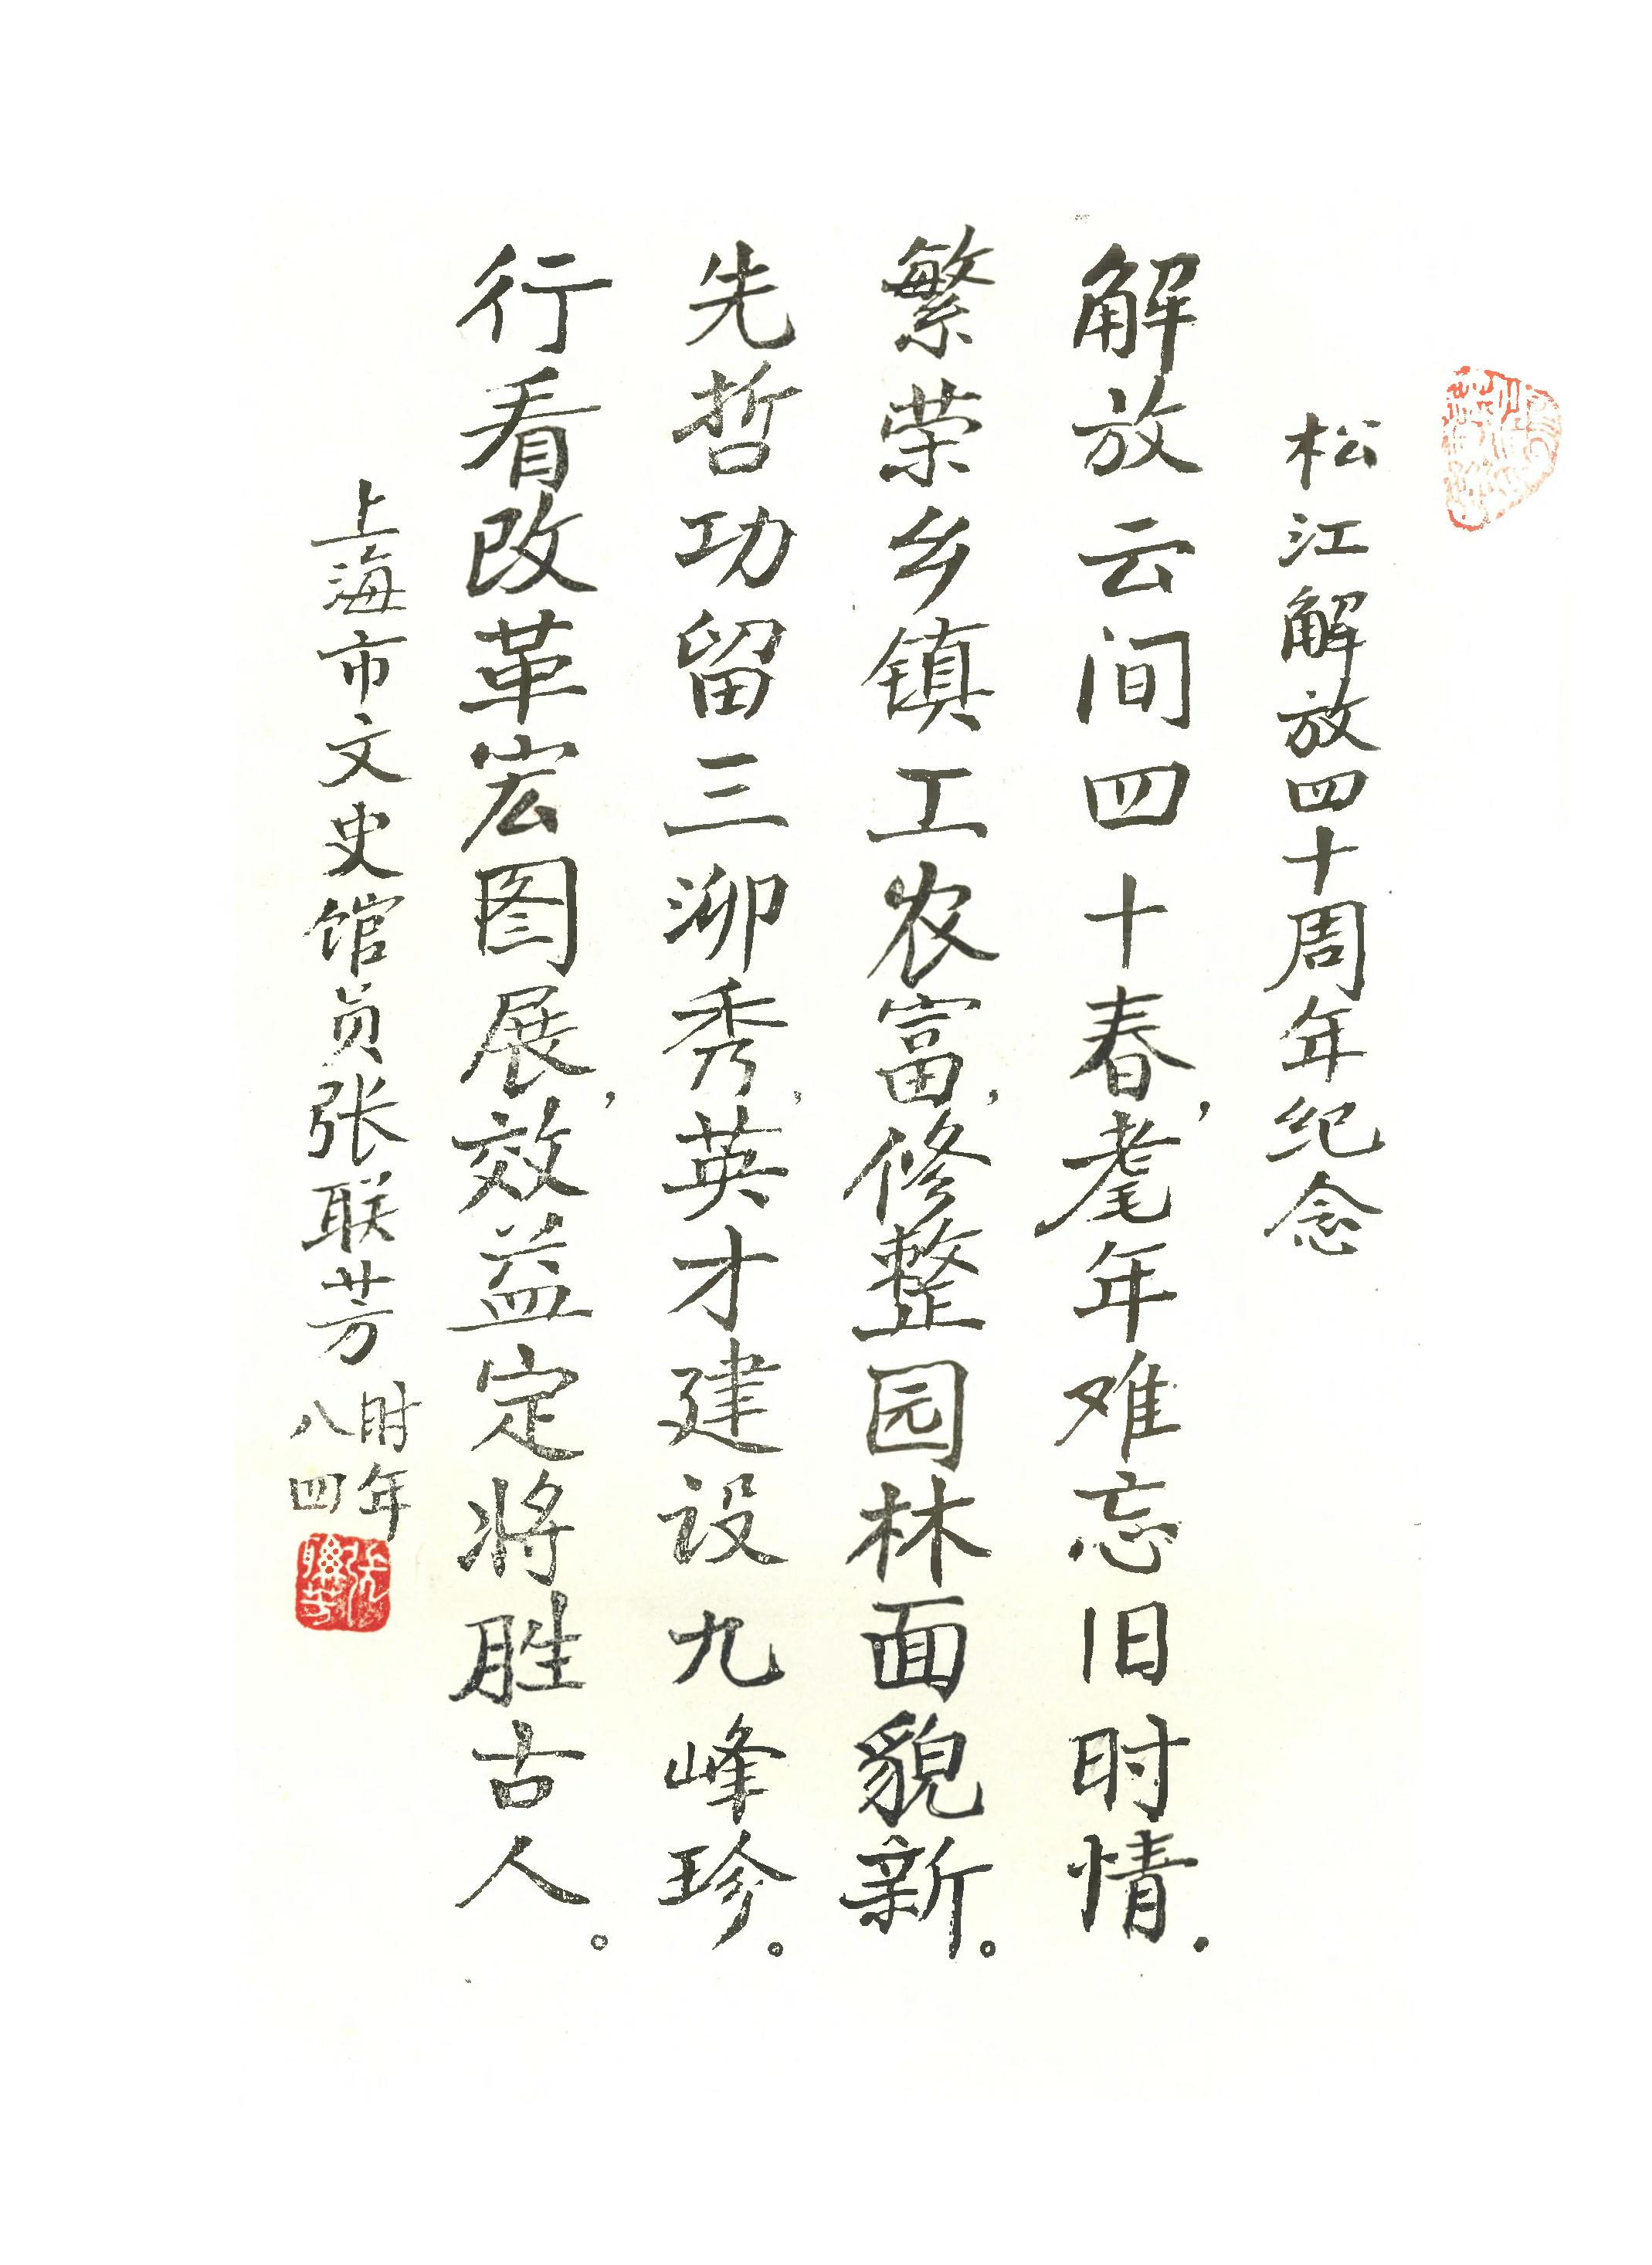 松江解放四十周年纪念
解放云间四十春，耄年难忘旧时情．
繁荣乡镇工农富，修整园林面貌新。
先哲功留三泖秀，英才建设九峰珍。
行看改革宏图展，效益定将胜古人。
上海市文史馆员张联芳
时年
八四
张
聯芳